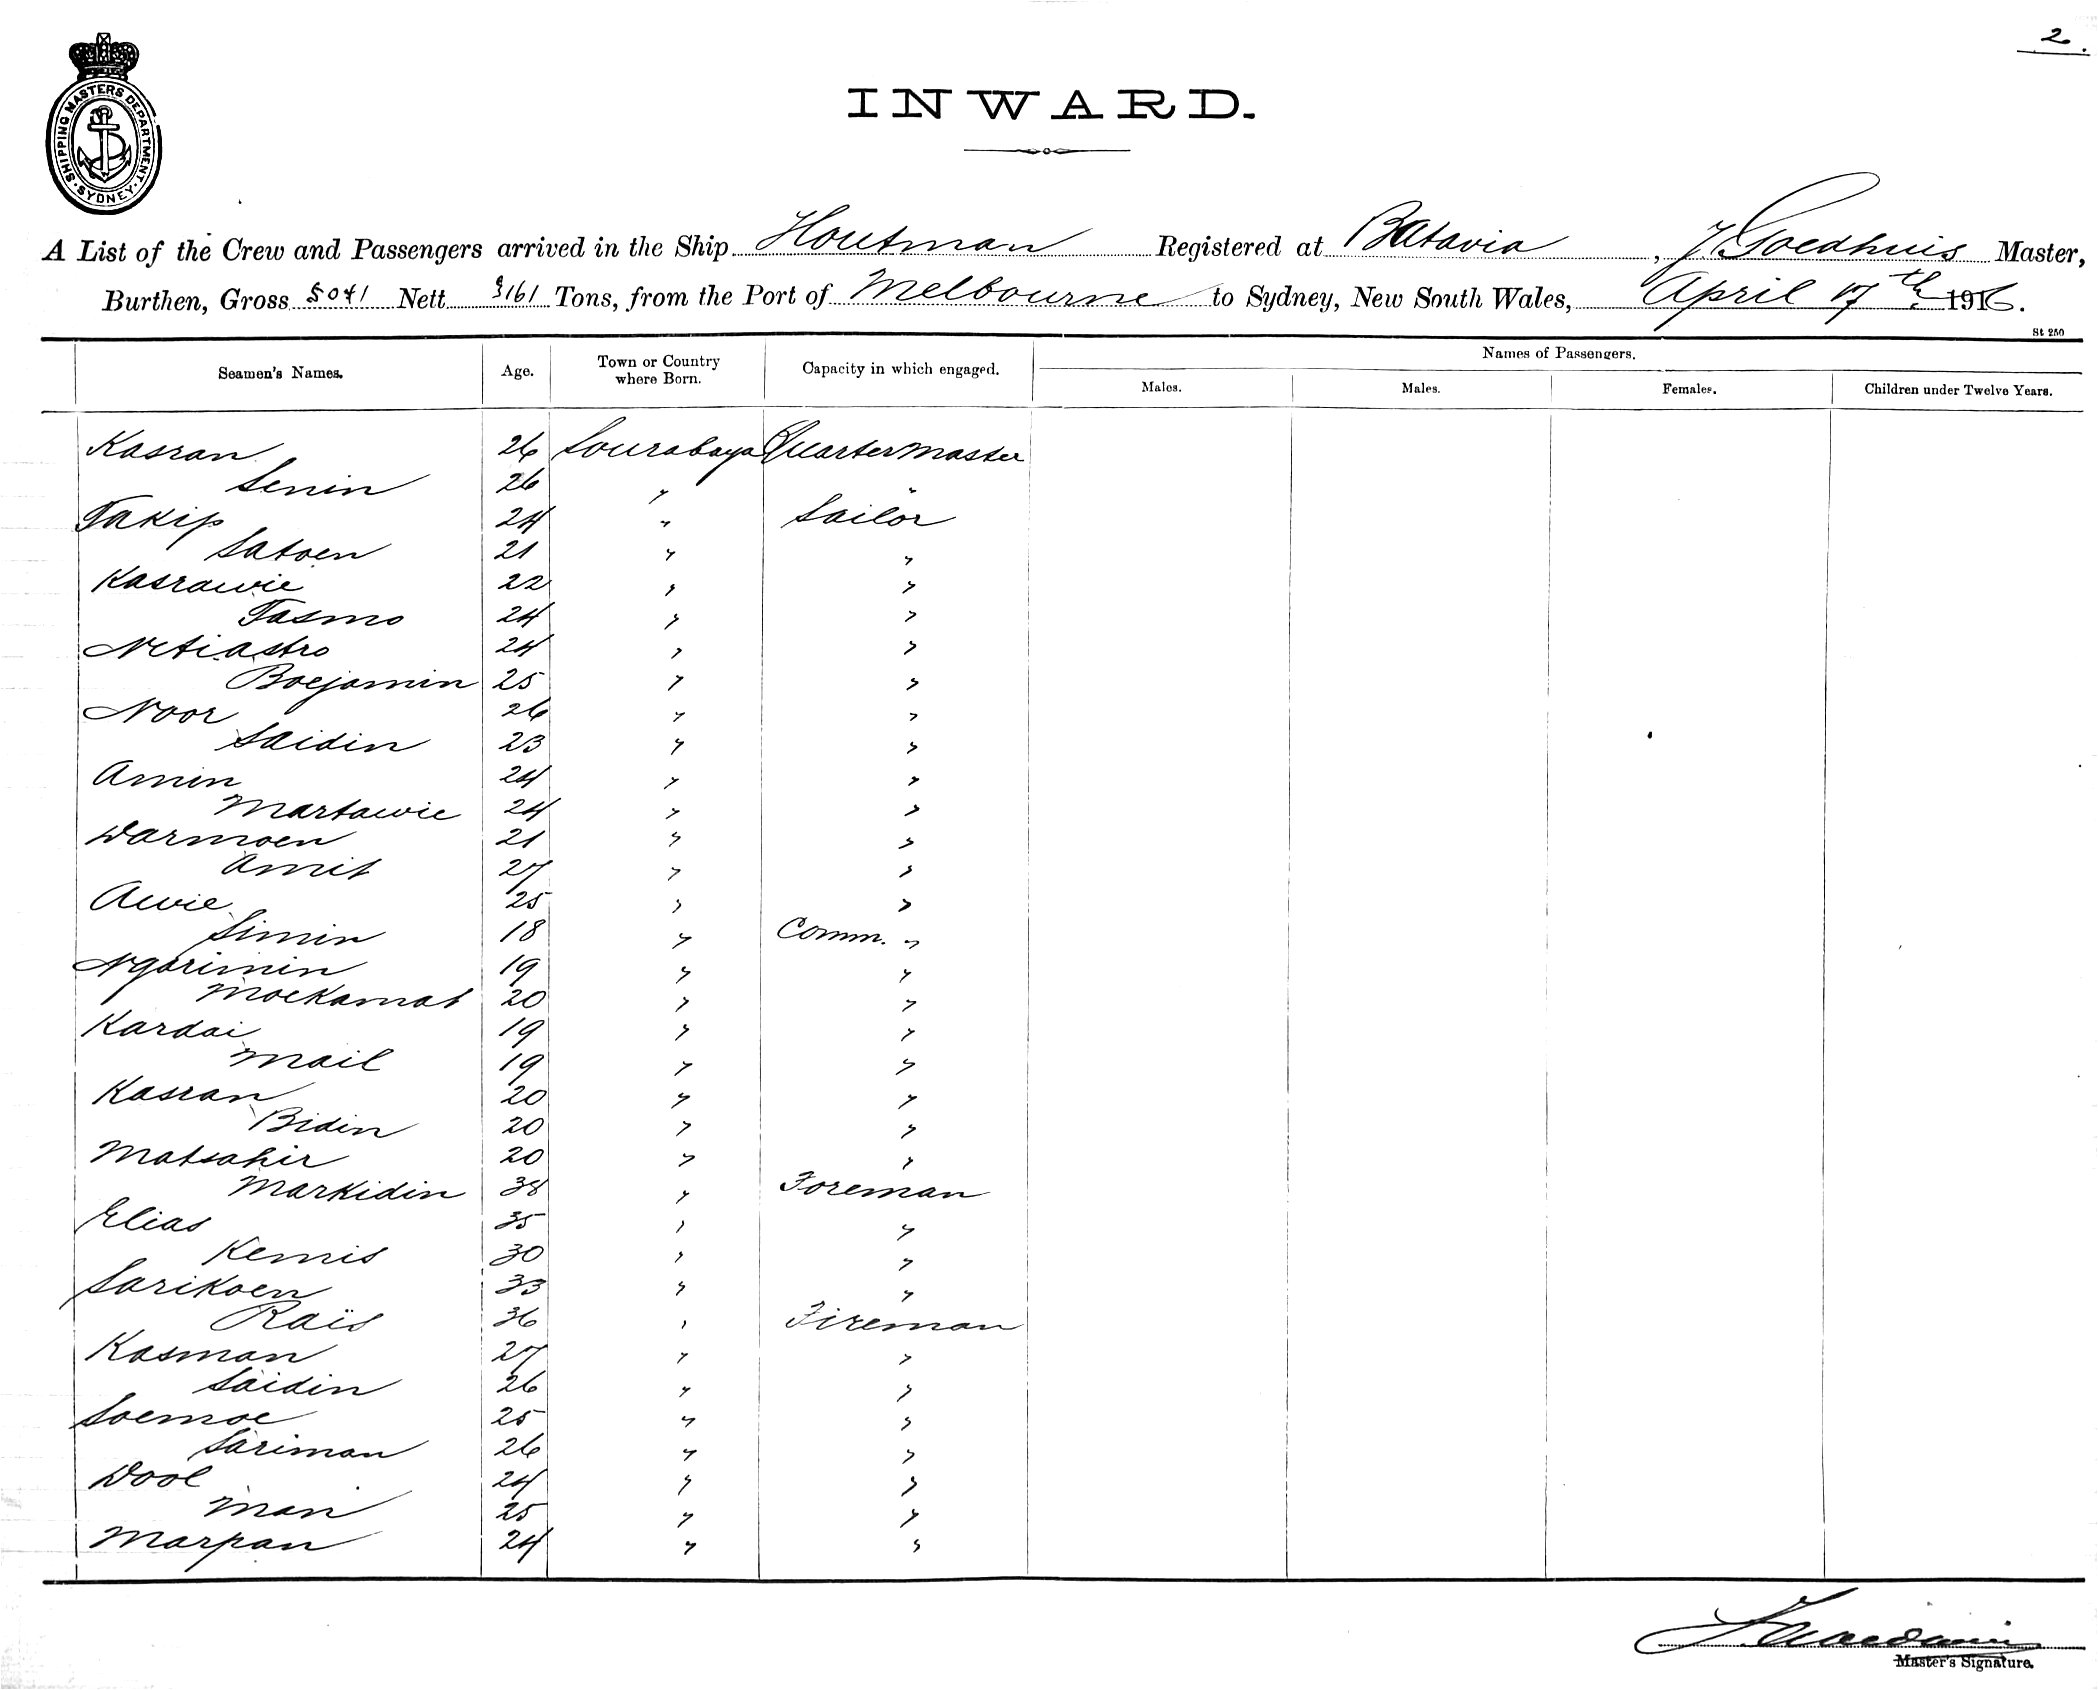 2.
SHIPPING MASTERS DEPARTMENT
SYDNEY
INWARD.
A List of the Crew and Passengers arrived in the Ship Houtman Registered at Batavia, J. Goedhuis Master,
Burthen, Gross 5041 Nett 3161 Tons, from the Port of Melbourne to Sydney, New South Wales, April 17th 1916.
St 250
Seamen's Names. Age. Town or Country where Born. Capacity in which engaged. Names of Passengers.
Males. Males. Females. Children under Twelve Years.
Kasran 26 Sourabaya Quartermaster
Senin 26 " "
Takip 24 " Sailor
Satoen 21 " "
Kasrawie 22 " "
Tasmo 24 " "
Netiastro 24 " "
Boejamin 25 " "
Noor 26 " "
Saidin 23 " "
Amin 24 " "
Martawie 24 " "
Darmoen 21 " "
Amit 27 " "
Awie 25 " "
Simin 18 " Comm. "
Ngarimin 19 " "
Moekamat 20 " "
Kardai 19 " "
Mail 19 " "
Kasran 20 " "
Bidin 20 " "
Matsahir 20 " "
Markidin 38 " Foreman
Elias 35 " "
Kemis 30 " "
Sarikoen 33 " "
Raïs 36 " Fireman
Kasman 27 " "
Saidin 26 " "
Soemoe 25 " "
Sariman 26 " "
Dool 24 " "
Man 25 " "
Marpan 24 " "
Master's Signature.